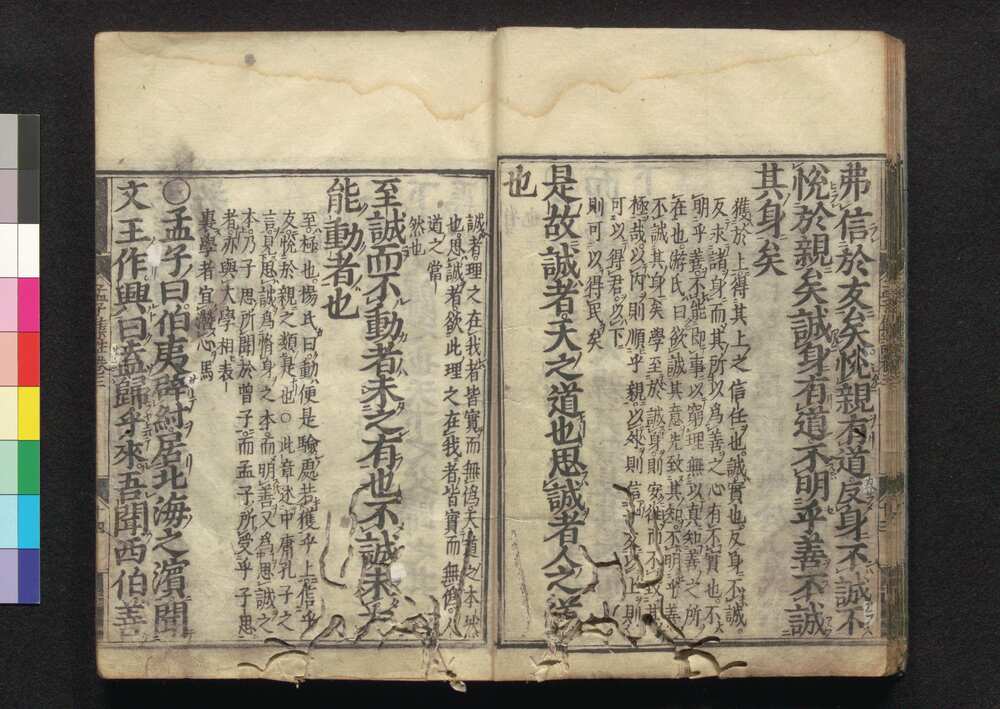 弗信於友矣悅親有道反身不誠不
悅於親矣誠身有道不明乎善不誠
其身矣
獲於上得其上之信任也誠實也反身不誠
反求諸身而其所以爲善之心有不實也不
明乎善不能即事以窮理無以真知善之所
在也游氏曰欲誠其意先致其知不明乎善
不誠其身矣學至於誠身則安徃而不致其
極哉以內則順乎親以外則信乎友以上則
可以得君以下
則可以得民矣
是故誠者天之道也思誠者人之道
也
誠者理之在我者皆實而無僞天道之本然
也思誠者欲此理之在我者皆實而無僞人
道之當
然也
至誠而不動者未之有也不誠未有
能動者也
至極也楊氏曰動便是驗處若獲乎上信乎
友悅於親之類是也○此章述中庸孔子之
言見思誠爲脩身之本而明善又爲思誠之
本乃子思所聞於曾子而孟子所受乎子思
者亦與大學相表
裏學者宜潛心焉
孟子曰伯夷辟紂居北海之濱聞
文王作興曰盍歸乎來吾聞西伯善